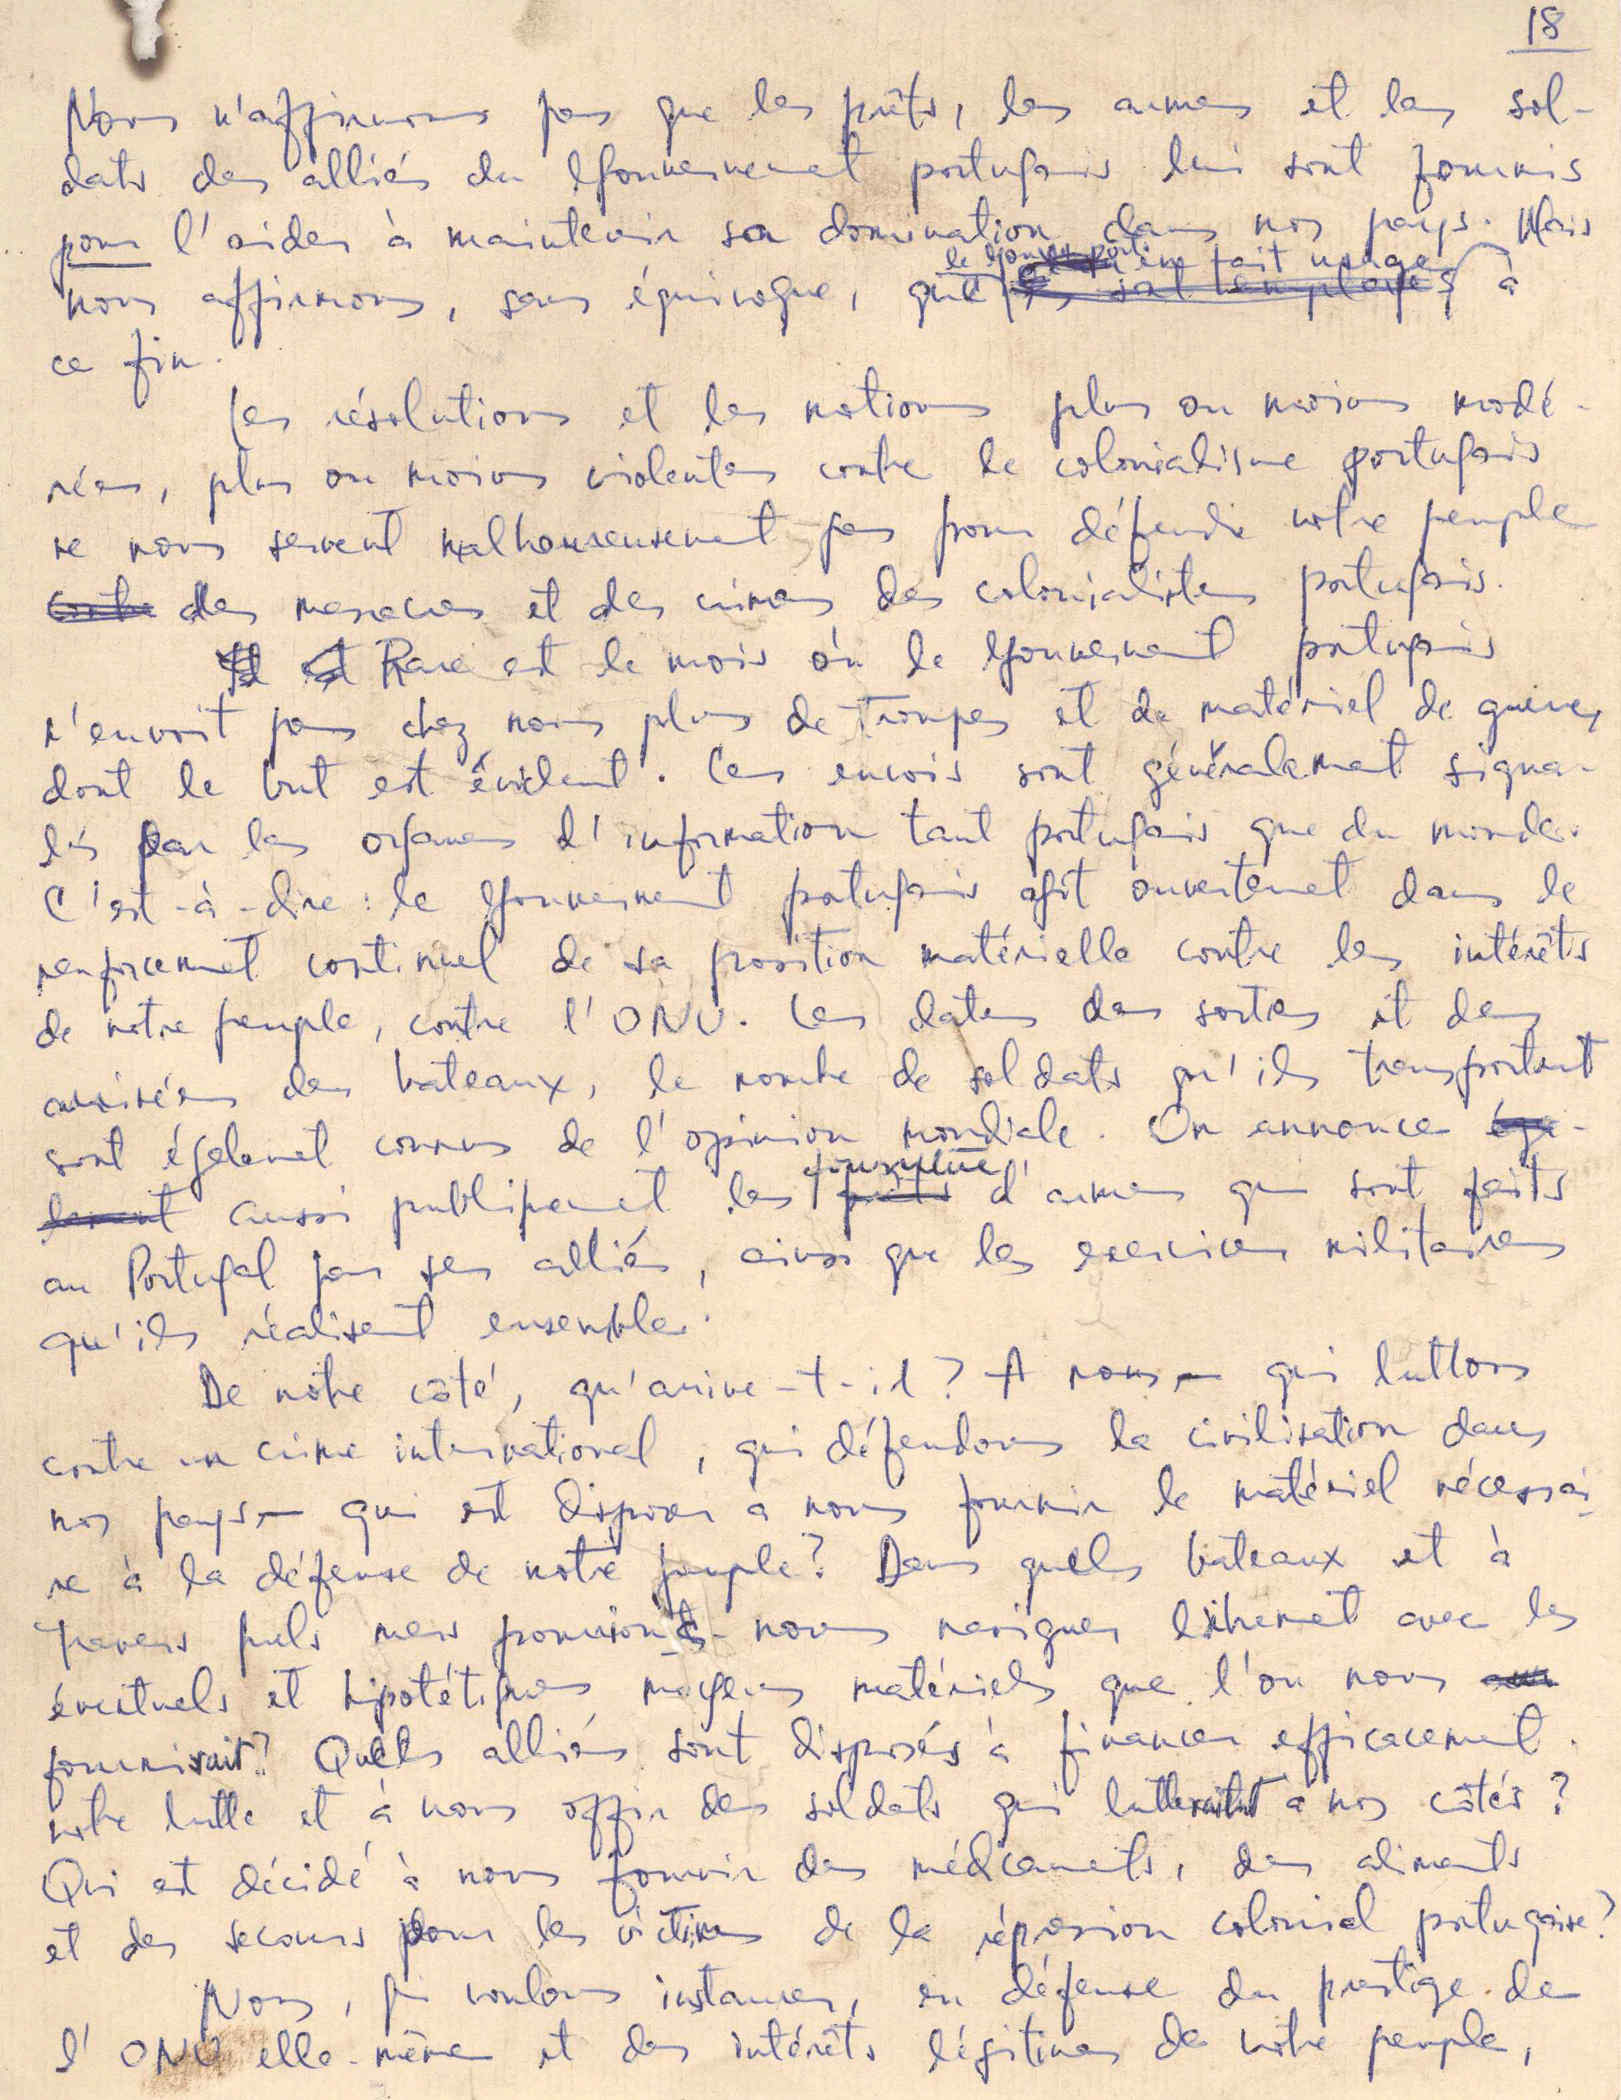 18
Nous n'affirmons pas que les prêts, les armes et les sol-
dats des alliés du Gouvernement portugais lui sont fournis
pour l'aider à maintenir sa domination dans nos pays. Mais
le Gouv. port. en fait usage
nous affirmons, sans équivoque, que ils sont employés à
ce fin.
Les résolutions et les motions plus ou moins modé-
rées, plus ou moins violentes contre le colonialisme portugais
ne nous servent malheureusement pas pour défendre notre peuple
contre des massacres et des crimes des colonialistes portugais.
Il est Rare est le mois où le Gouvernement portugais
n'envoit pas chez nous plus de troupes et de matériel de guerre,
dont le but est évident. Ces envois sont généralement signa-
lés par les organes d'information tant portugais que du monde.
C'est-à-dire: le Gouvernement portugais agit ouvertement dans le
renforcement continuel de sa position matérielle contre les intérêts
de notre peuple, contre l'ONU. Les dates des sorties et des
arrivées des bateaux, le nombre de soldats qu'ils transportent
sont également connus de l'opinion mondiale. On annonce éga-
fourniture
lement aussi publiquement les prêts d'armes qui sont faits
au Portugal par ses alliés, ainsi que les exercices militaires
qu'ils réalisent ensemble.
De notre côté, qu'arrive-t-il? A nous — qui luttons
contre un crime international, qui défendons la civilisation dans
nos pays — qui est disposer à nous fournir le matériel nécessai-
re à la défense de notre peuple? Dans quels bateaux et à
travers quels mers pourrions-nous naviguer librement avec les
éventuels et hipotétiques moyens matériels que l'on nous
fournirait? Quels alliés sont disposés à financer efficacement
notre lutte et à nous offrir des soldats qui lutteraient à nos côtés?
Qui est décidé à nous fournir des médicaments, des aliments
et des secours pour les victimes de la répression colonial portugaise?
Nous, qui voulons instaurer, en défense du prestige de
l'ONU elle-même et des intérêts légitimes de notre peuple,